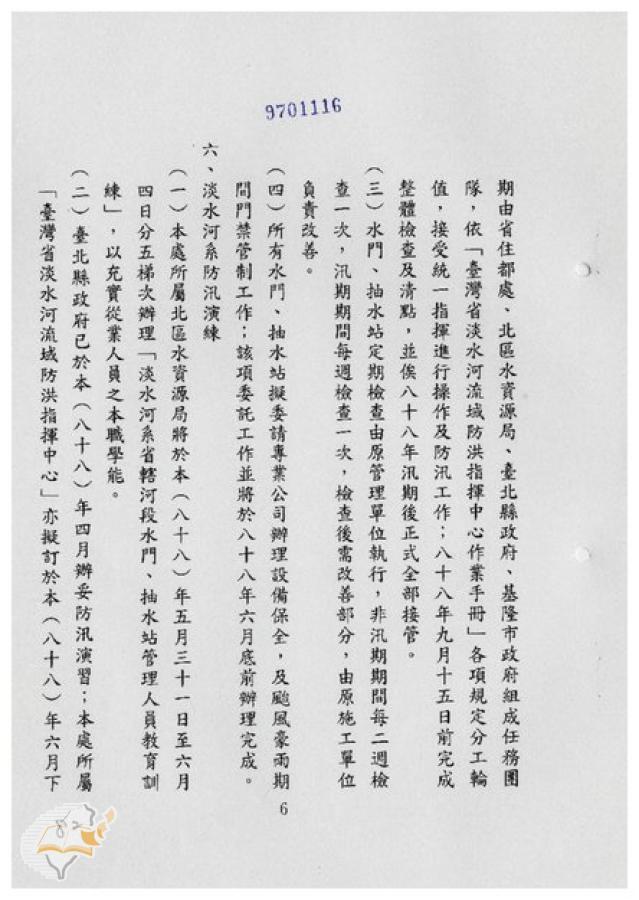 9701116
期由省住都處、北區水資源局、臺北縣政府、基隆市政府組成任務團
隊，依「臺灣省淡水河流域防洪指揮中心作業手冊」各項規定分工輪
值，接受統一指揮進行操作及防汛工作；八十八年九月十五日前完成
整體檢查及清點，並俟八十八年汛期後正式全部接管。
（三）水門、抽水站定期檢查由原管理單位執行，非汛期期間每二週檢
查一次，汛期期間每週檢查一次，檢查後需改善部分，由原施工單位
負責改善。
（四）所有水門、抽水站擬委請專業公司辦理設備保全，及颱風豪雨期
間門禁管制工作；該項委託工作並將於八十八年六月底前辦理完成。
六、淡水河系防汛演練
（一）本處所屬北區水資源局將於本（八十八）年五月三十一日至六月
四日分五梯次辦理「淡水河系省轄河段水門、抽水站管理人員教育訓
練」，以充實從業人員之本職學能。
（二）臺北縣政府已於本（八十八）年四月辦妥防汛演習；本處所屬
「臺灣省淡水河流域防洪指揮中心」亦擬訂於本（八十八）年六月下
6
82